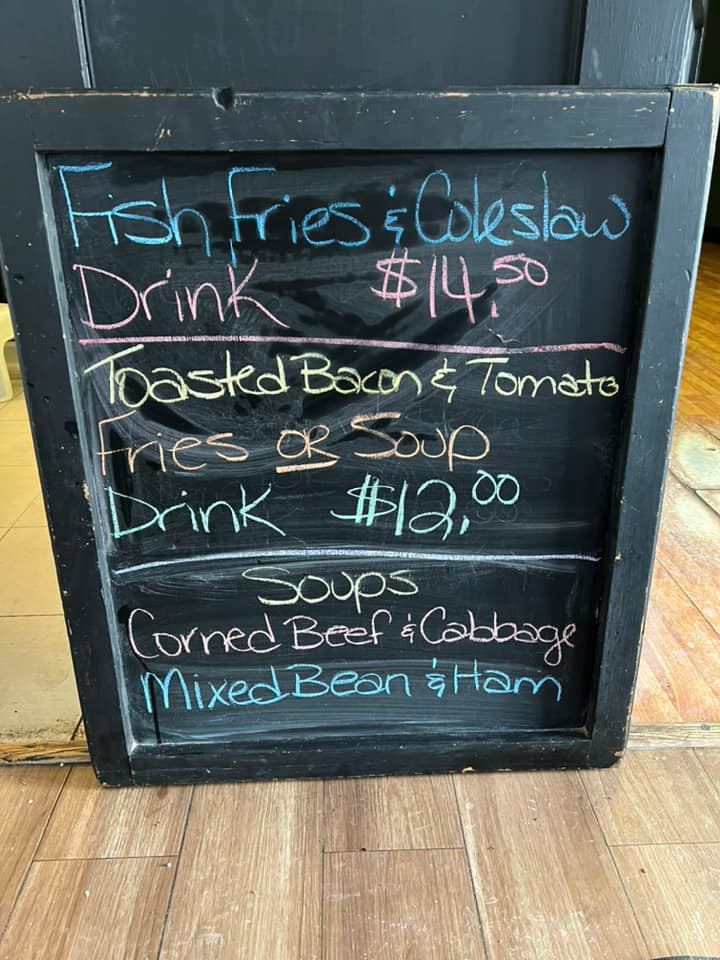 Fish Fries & Coleslaw
Drink $14.50
Toasted Bacon & Tomato
Fries OR Soup
Drink $12.00
Soups
Corned Beef & Cabbage
Mixed Bean & Ham